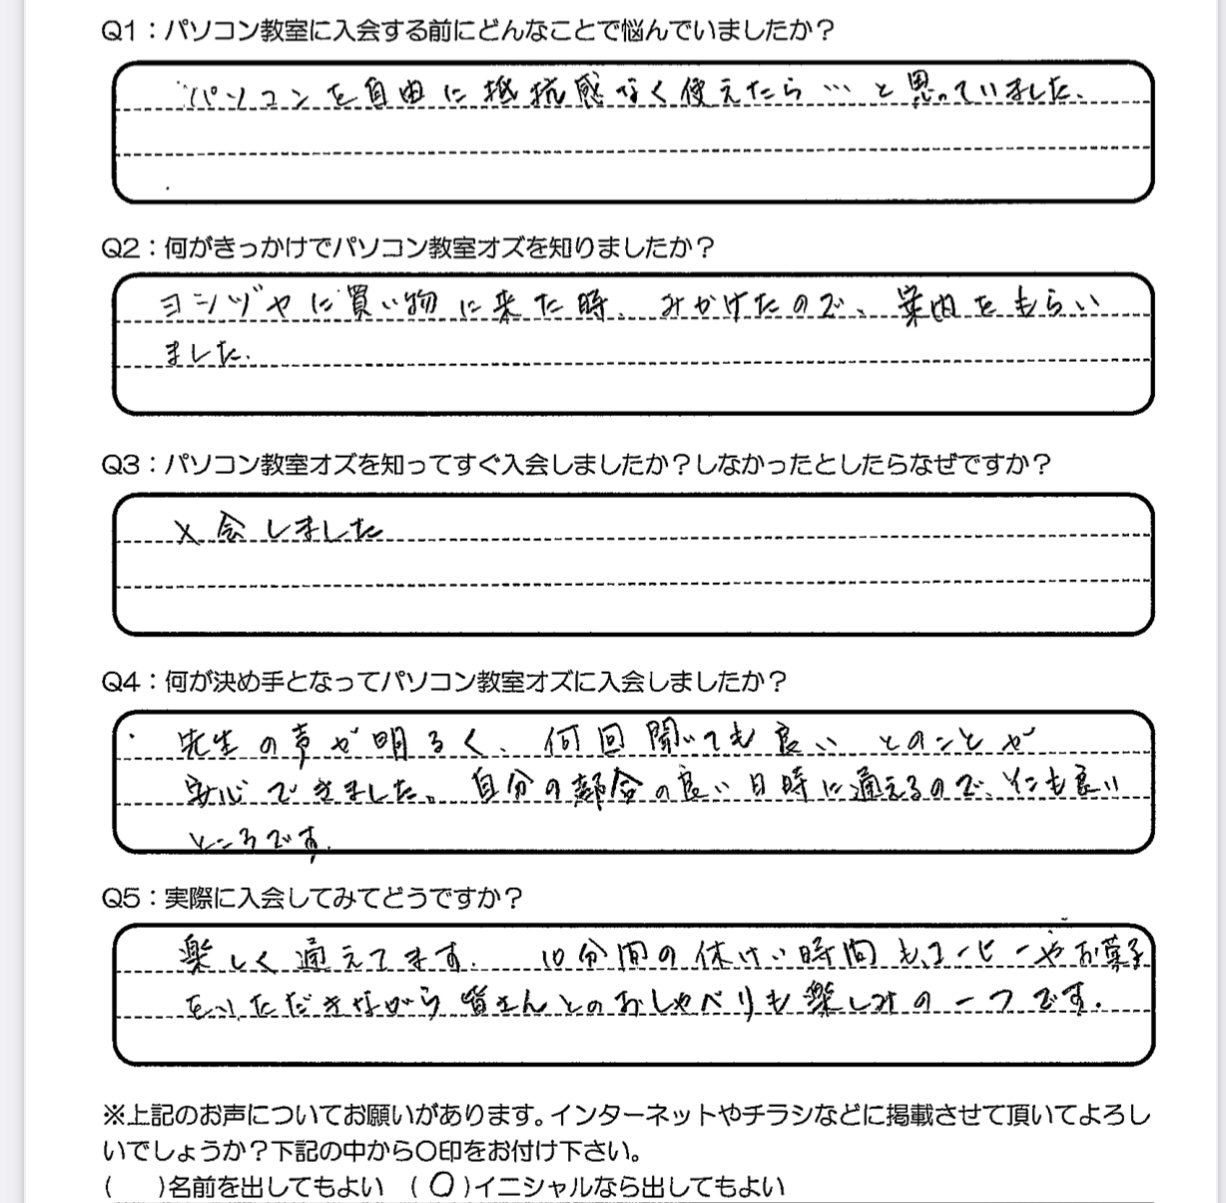 Q1：パソコン教室に入会する前にどんなことで悩んでいましたか？
パソコンを自由に抵抗感なく使えたら…と思っていました。
Q2：何がきっかけでパソコン教室オズを知りましたか？
ヨシヅヤに買い物に来た時、みかけたので、案内をもらい
ました。
Q3：パソコン教室オズを知ってすぐ入会しましたか？しなかったとしたらなぜですか？
入会しました
Q4：何が決め手となってパソコン教室オズに入会しましたか？
先生の声が明るく、何回聞いても良い とのことが
安心できました。自分の都合の良い日時に通えるので、そこも良い
ところです。
Q5：実際に入会してみてどうですか？
楽しく通えてます。 10分間の休けい時間も、コーヒーやお菓子
をいただきながら皆さんとのおしゃべりも楽しみの一つです。
※上記のお声についてお願いがあります。インターネットやチラシなどに掲載させて頂いてよろし
いでしょうか？下記の中から〇印をお付け下さい。
(　　)名前を出してもよい　(〇)イニシャルなら出してもよい